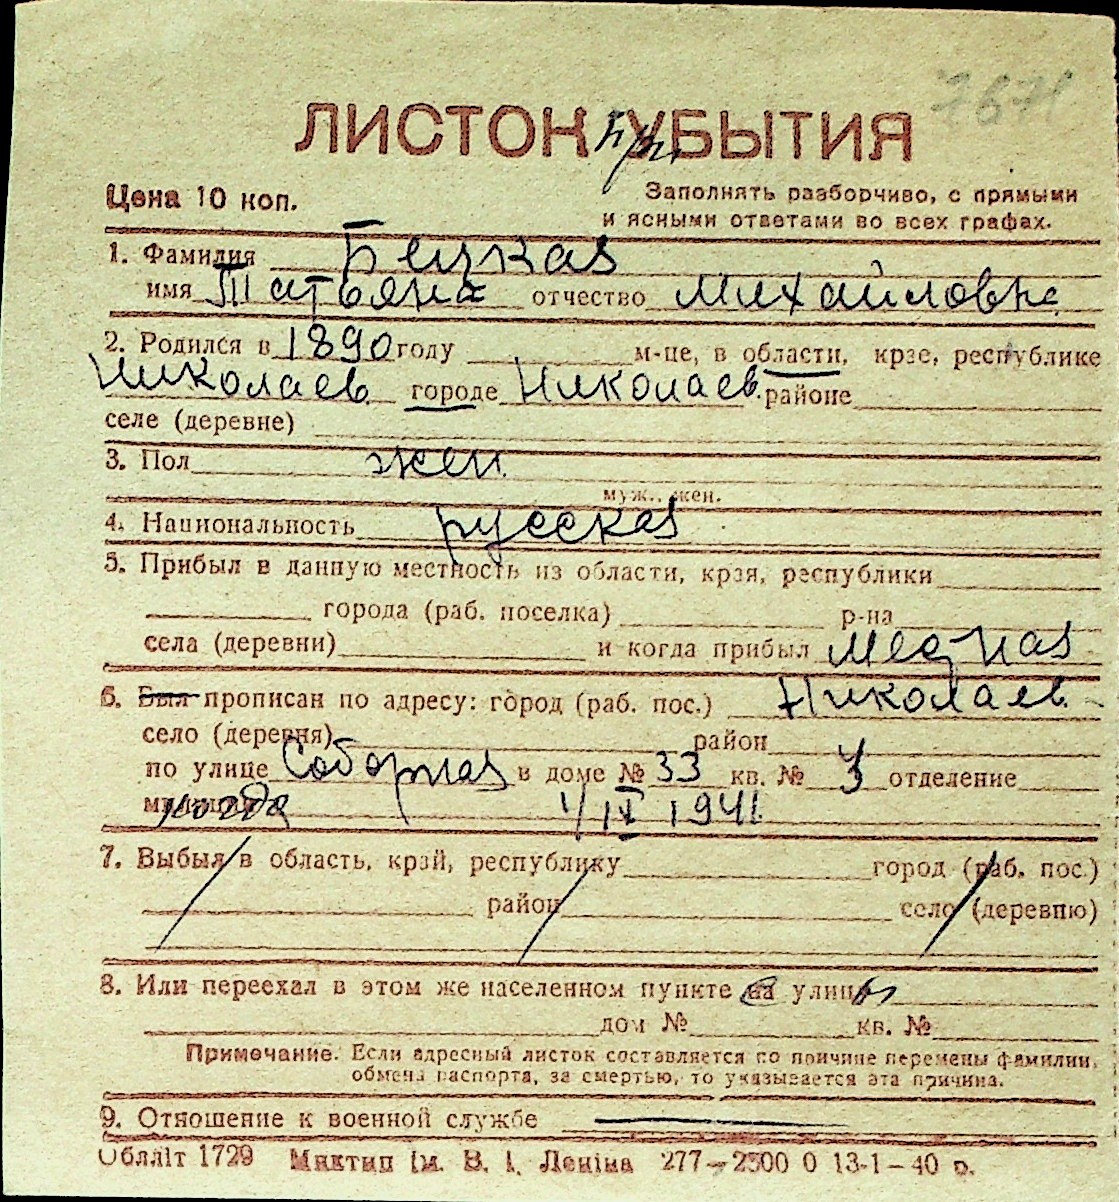 7671
ЛИСТОК УБЫТИЯ
Цена 10 коп.
Заполнять разборчиво, с прямыми
и ясными ответами во всех графах.
1. Фамилия Бецкая
имя Татьяна отчество Михайловна
2. Родился в 1890 году м-це, в области, крае, республике
Николаев городе Николаев. районе
селе (деревне)
3. Пол жен.
муж., жен.
4. Национальность русская
5. Прибыл в данную местность из области, края, республики
города (раб. поселка) р-на
села (деревни) и когда прибыл местная
6. Был прописан по адресу: город (раб. пос.) Николаев.
село (деревня) район
по улице Соборная в доме № 33 кв. № 3 отделение
милиции когда 1/IV 1941.
7. Выбыл в область, край, республику город (раб. пос.)
район село (деревню)
8. Или переехал в этом же населенном пункте на улицу
дом № кв. №
Примечание. Если адресный листок составляется по причине перемены фамилии,
обмена паспорта, за смертью, то указывается эта причина.
9. Отношение к военной службе
Обллiт 1729 Миктип iм. В. I. Ленiна 277—2500 0 13-1—40 р.